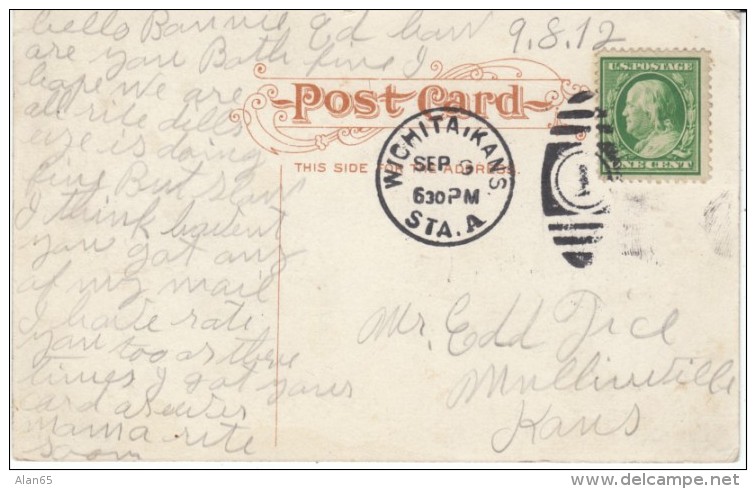 hello Bannie Ed how
are you Both fine I
hope we are
all rite
is doing
fine but
I think havent
you got any
of my mail
I have
you too or three
times I got your
card
mama rite
soon
9.8.12
Post Card
THIS SIDE FOR THE ADDRESS.
WICHITA, KANS.
SEP
630 PM
STA. A
U.S. POSTAGE
ONE CENT
Mr. Edd Tice
Mullinville
Kans
Alan65
delcampe.net